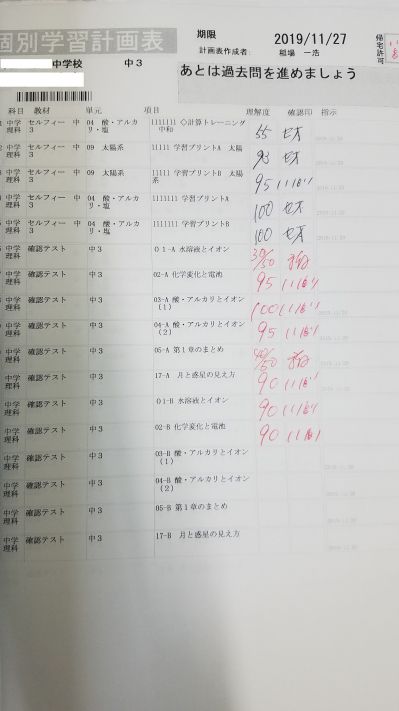 個別学習計画表
期限 2019/11/27
計画表作成者: 稲場 一浩
帰宅許可
中学校 中3
あとは過去問を進めましょう
科目 教材 単元 項目 理解度 確認印 指示
中学理科 セルフィー 中3 04 酸・アルカリ・塩 1111111 ◇計算トレーニング 中和 55
中学理科 セルフィー 中3 09 太陽系 11111 学習プリントA 太陽系
中学理科 セルフィー 中3 09 太陽系 11111 学習プリントB 太陽系 95
中学理科 セルフィー 中3 04 酸・アルカリ・塩 1111111 学習プリントA 100
中学理科 セルフィー 中3 04 酸・アルカリ・塩 1111111 学習プリントB 100
中学理科 確認テスト 中3 01-A 水溶液とイオン
中学理科 確認テスト 中3 02-A 化学変化と電池 95
中学理科 確認テスト 中3 03-A 酸・アルカリとイオン(1) 100
中学理科 確認テスト 中3 04-A 酸・アルカリとイオン(2) 95
中学理科 確認テスト 中3 05-A 第1章のまとめ
中学理科 確認テスト 中3 17-A 月と惑星の見え方 90
中学理科 確認テスト 中3 01-B 水溶液とイオン 90
中学理科 確認テスト 中3 02-B 化学変化と電池 90
中学理科 確認テスト 中3 03-B 酸・アルカリとイオン(1)
中学理科 確認テスト 中3 04-B 酸・アルカリとイオン(2)
中学理科 確認テスト 中3 05-B 第1章のまとめ
中学理科 確認テスト 中3 17-B 月と惑星の見え方